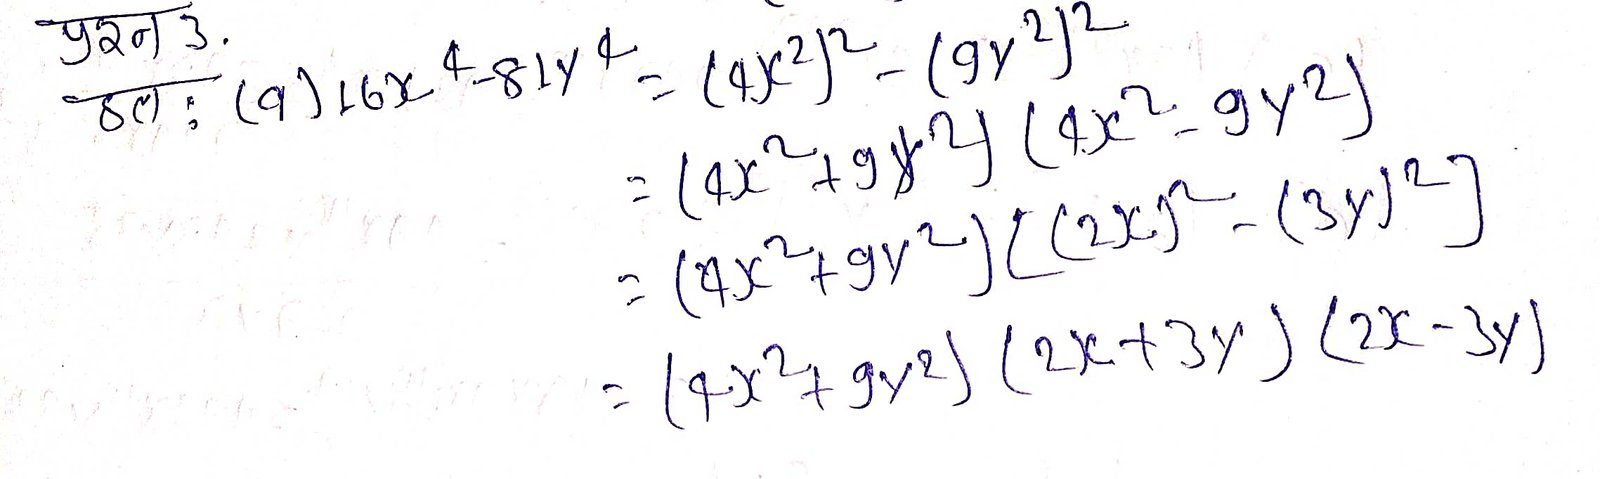 प्रश्न 3.
हल : (9) 16x⁴-81y⁴ = (4x²)² - (9y²)²
= (4x²+9y²) (4x²-9y²)
= (4x²+9y²) [(2x)² - (3y)²]
= (4x²+9y²) (2x+3y) (2x-3y)